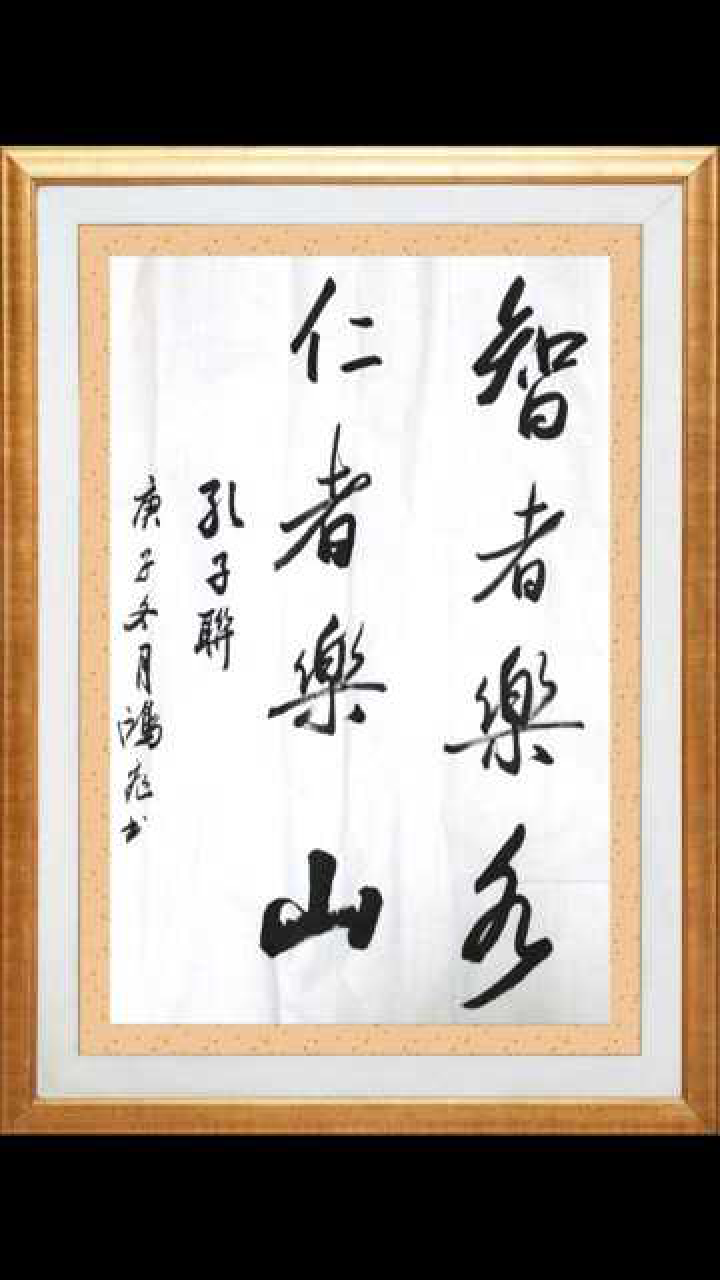 智者樂水
仁者樂山
孔子聯
庚子冬月鴻志书